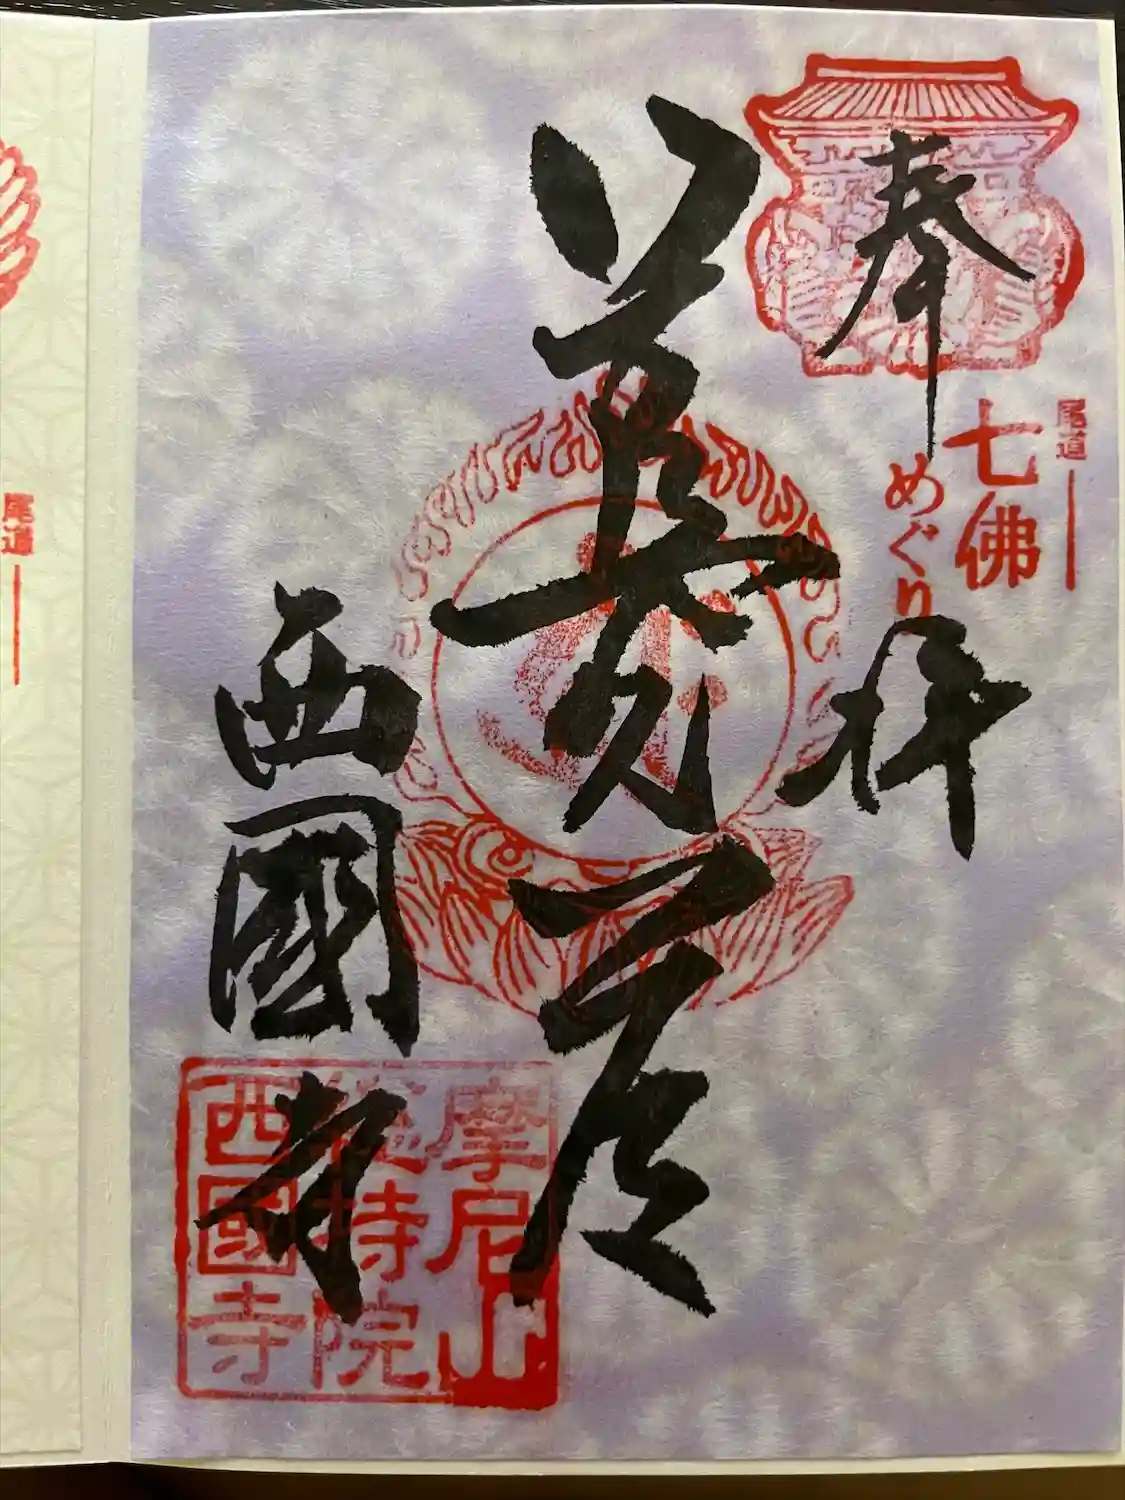 奉拝
尾道
七佛
めぐり
西國寺
摩尼山
総持院
西國寺
尾道